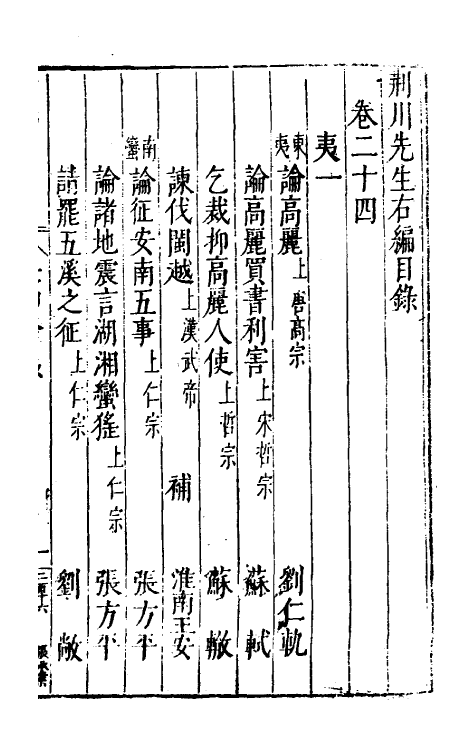 荆川先生右編目錄
卷二十四
夷一
東夷 論高麗 上唐高宗 劉仁軌
論高麗買書利害 上宋哲宗 蘇軾
乞裁抑高麗人使 上哲宗 蘇轍
諫伐閩越 上漢武帝 補 淮南王安
南蠻 論征安南五事 上仁宗 張方平
論諸地震言湖湘蠻猺 上仁宗 張方平
請罷五溪之征 上仁宗 劉敞